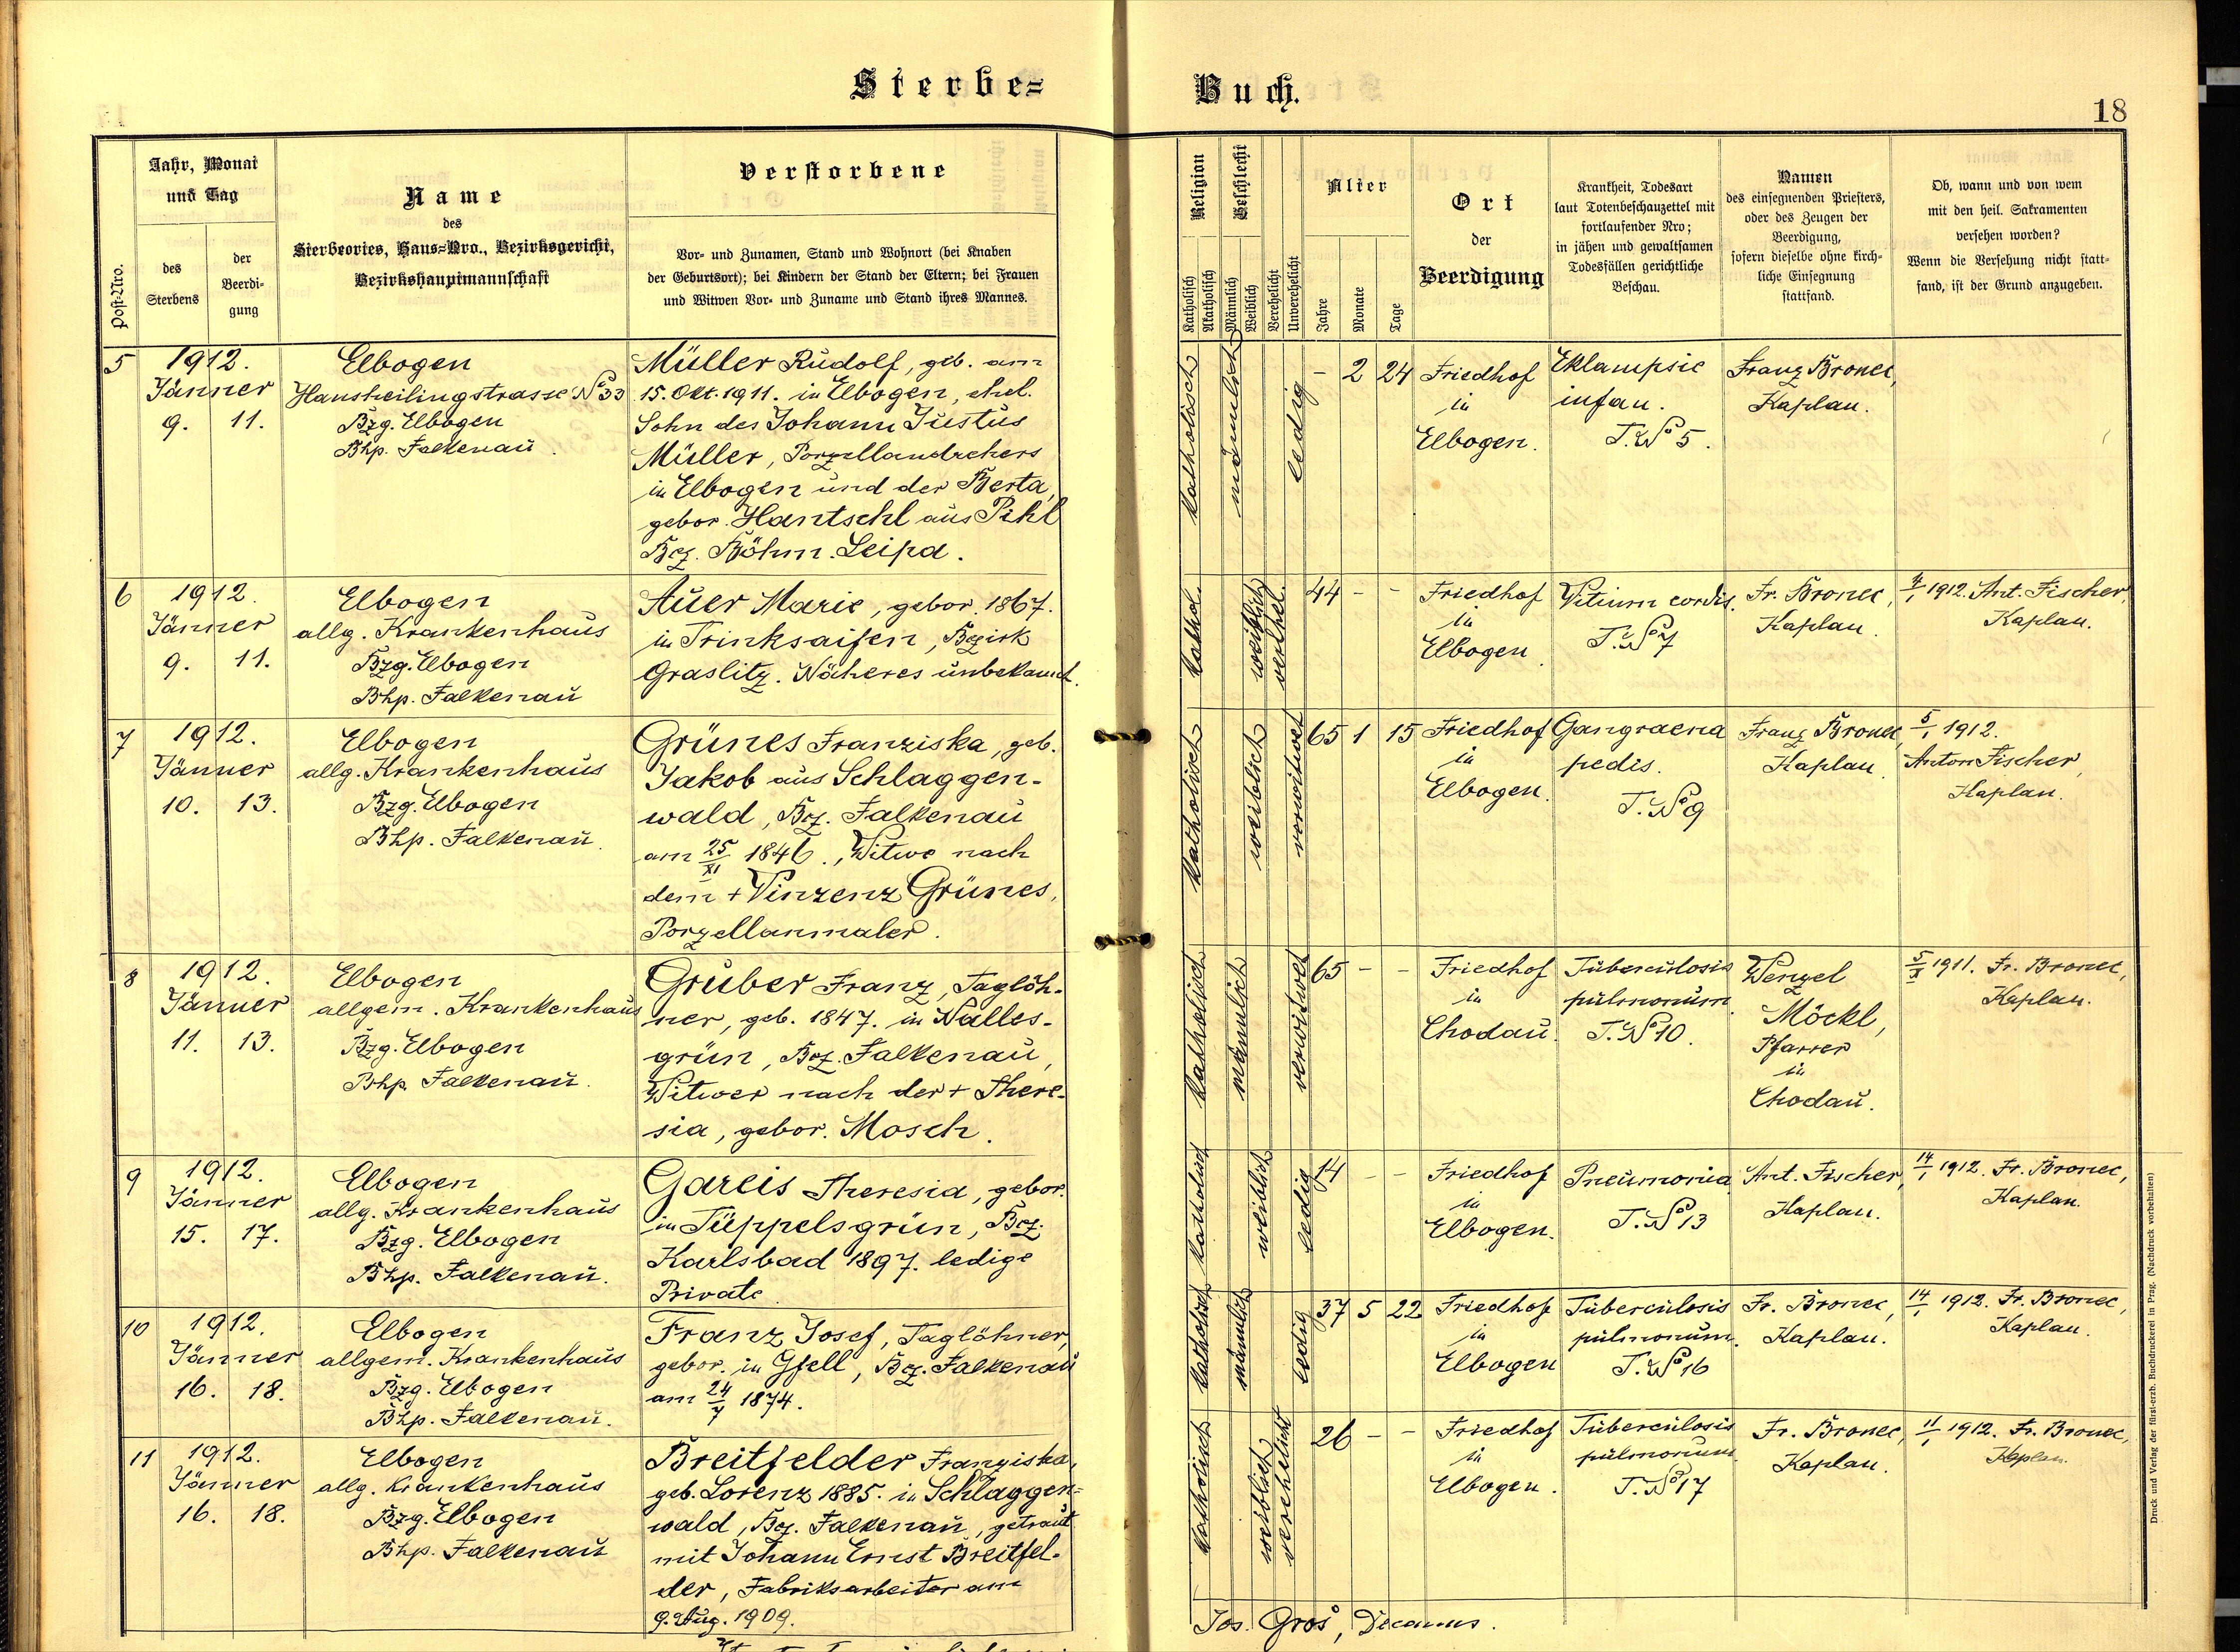 Sterbe-
Buch.
18
Post-Nro.
Jahr, Monat
und Tag
des
Sterbens
der
Beerdi-
gung
Name
des
Sterbeortes, Haus-Nro., Bezirksgericht,
Bezirkshauptmannschaft
Verstorbene
Vor- und Zunamen, Stand und Wohnort (bei Knaben
der Geburtsort); bei Kindern der Stand der Eltern; bei Frauen
und Witwen Vor- und Zuname und Stand ihres Mannes.
Religion
Katholisch
Akatholisch
Geschlecht
Männlich
Weiblich
Verehelicht
Unverehelicht
Alter
Jahre
Monate
Tage
Ort
der
Beerdigung
Krankheit, Todesart
laut Totenbeschauzettel mit
fortlaufender Nro;
in jähen und gewaltsamen
Todesfällen gerichtliche
Beschau.
Namen
des einsegnenden Priesters,
oder des Zeugen der
Beerdigung,
sofern dieselbe ohne kirch-
liche Einsegnung
stattfand.
Ob, wann und von wem
mit den heil. Sakramenten
versehen worden?
Wenn die Versehung nicht statt-
fand, ist der Grund anzugeben.
5
1912.
Jänner
9. 11.
Elbogen
Hansheilingstrasse No 33
Bzg. Elbogen
Bhp. Falkenau.
Müller Rudolf, geb. am
15. Okt. 1911. in Elbogen, ehel.
Sohn des Johann Justus
Müller, Porzellandrehers
in Elbogen und der Berta,
gebor. Hantschl aus Pihl
Bez. Böhm. Leipa.
katholisch
männlich
ledig
- 2 24
Friedhof
in
Elbogen.
Eklampsie
infan.
T. No 5.
Franz Bronec,
Kaplan.
6
1912.
Jänner
9. 11.
Elbogen
allg. Krankenhaus
Bzg. Elbogen
Bhp. Falkenau
Auer Marie, gebor. 1867.
in Trinksaifen, Bezirk
Graslitz. Näheres unbekannt.
kathol.
weiblich
verehel.
44 - -
Friedhof
in
Elbogen.
Vitium cordis.
T. No 7
Fr. Bronec,
Kaplan.
1912. Ant. Fischer,
Kaplan.
7
1912.
Jänner
10. 13.
Elbogen
allg. Krankenhaus
Bzg. Elbogen
Bhp. Falkenau.
Grünes Franziska, geb.
Jakob aus Schlaggen-
wald, Bez. Falkenau
am 25/XI 1846., Witwe nach
dem + Vinzenz Grünes,
Porzellanmaler.
katholisch
weiblich
verwitwet
65 1 15
Friedhof
in
Elbogen.
Gangraena
pedis.
T. No 9
Franz Bronec,
Kaplan.
5/1 1912.
Anton Fischer,
Kaplan.
8
1912.
Jänner
11. 13.
Elbogen
allgem. Krankenhaus
Bzg. Elbogen
Bhp. Falkenau.
Gruber Franz, Taglöh-
ner, geb. 1847. in Nalles-
grün, Bez. Falkenau,
Witwer nach der + There-
sia, gebor. Mosch.
katholisch
männlich
verwitwet
65 - -
Friedhof
in
Chodau.
Tuberculosis
pulmonum.
T. No 10.
Wenzel
Möckl,
Pfarrer
in
Chodau.
1911. Fr. Bronec,
Kaplan.
9
1912.
Jänner
15. 17.
Elbogen
allg. Krankenhaus
Bzg. Elbogen
Bhp. Falkenau.
Gareis Theresia, gebor.
in Tüppelsgrün, Bez.
Karlsbad 1897. ledige
Private
katholisch
weiblich
ledig
14 - -
Friedhof
in
Elbogen.
Pneumonia
T. No 13
Ant. Fischer,
Kaplan.
14/1 1912. Fr. Bronec,
Kaplan.
10
1912.
Jänner
16. 18.
Elbogen
allgem. Krankenhaus
Bzg. Elbogen
Bhp. Falkenau.
Franz Josef, Taglöhner,
gebor. in Gfell, Bez. Falkenau
am 24/7 1874.
katholisch
männlich
ledig
37 5 22
Friedhof
in
Elbogen
Tuberculosis
pulmonum.
T. No 16
Fr. Bronec,
Kaplan.
14/1 1912. Fr. Bronec,
Kaplan.
11
1912.
Jänner
16. 18.
Elbogen
allg. Krankenhaus
Bzg. Elbogen
Bhp. Falkenau
Breitfelder Franziska,
geb. Lorenz 1885. in Schlaggen-
wald, Bez. Falkenau, getraut
mit Johann Ernst Breitfel-
der, Fabriksarbeiter am
9. Aug. 1909.
katholisch
weiblich
verehelicht
26 - -
Friedhof
in
Elbogen.
Tuberculosis
pulmonum
T. No 17
Fr. Bronec,
Kaplan.
11/1 1912. Fr. Bronec,
Kaplan.
Jos. Gros, Decanus.
Druck und Verlag der fürst-erzb. Buchdruckerei in Prag. (Nachdruck vorbehalten)